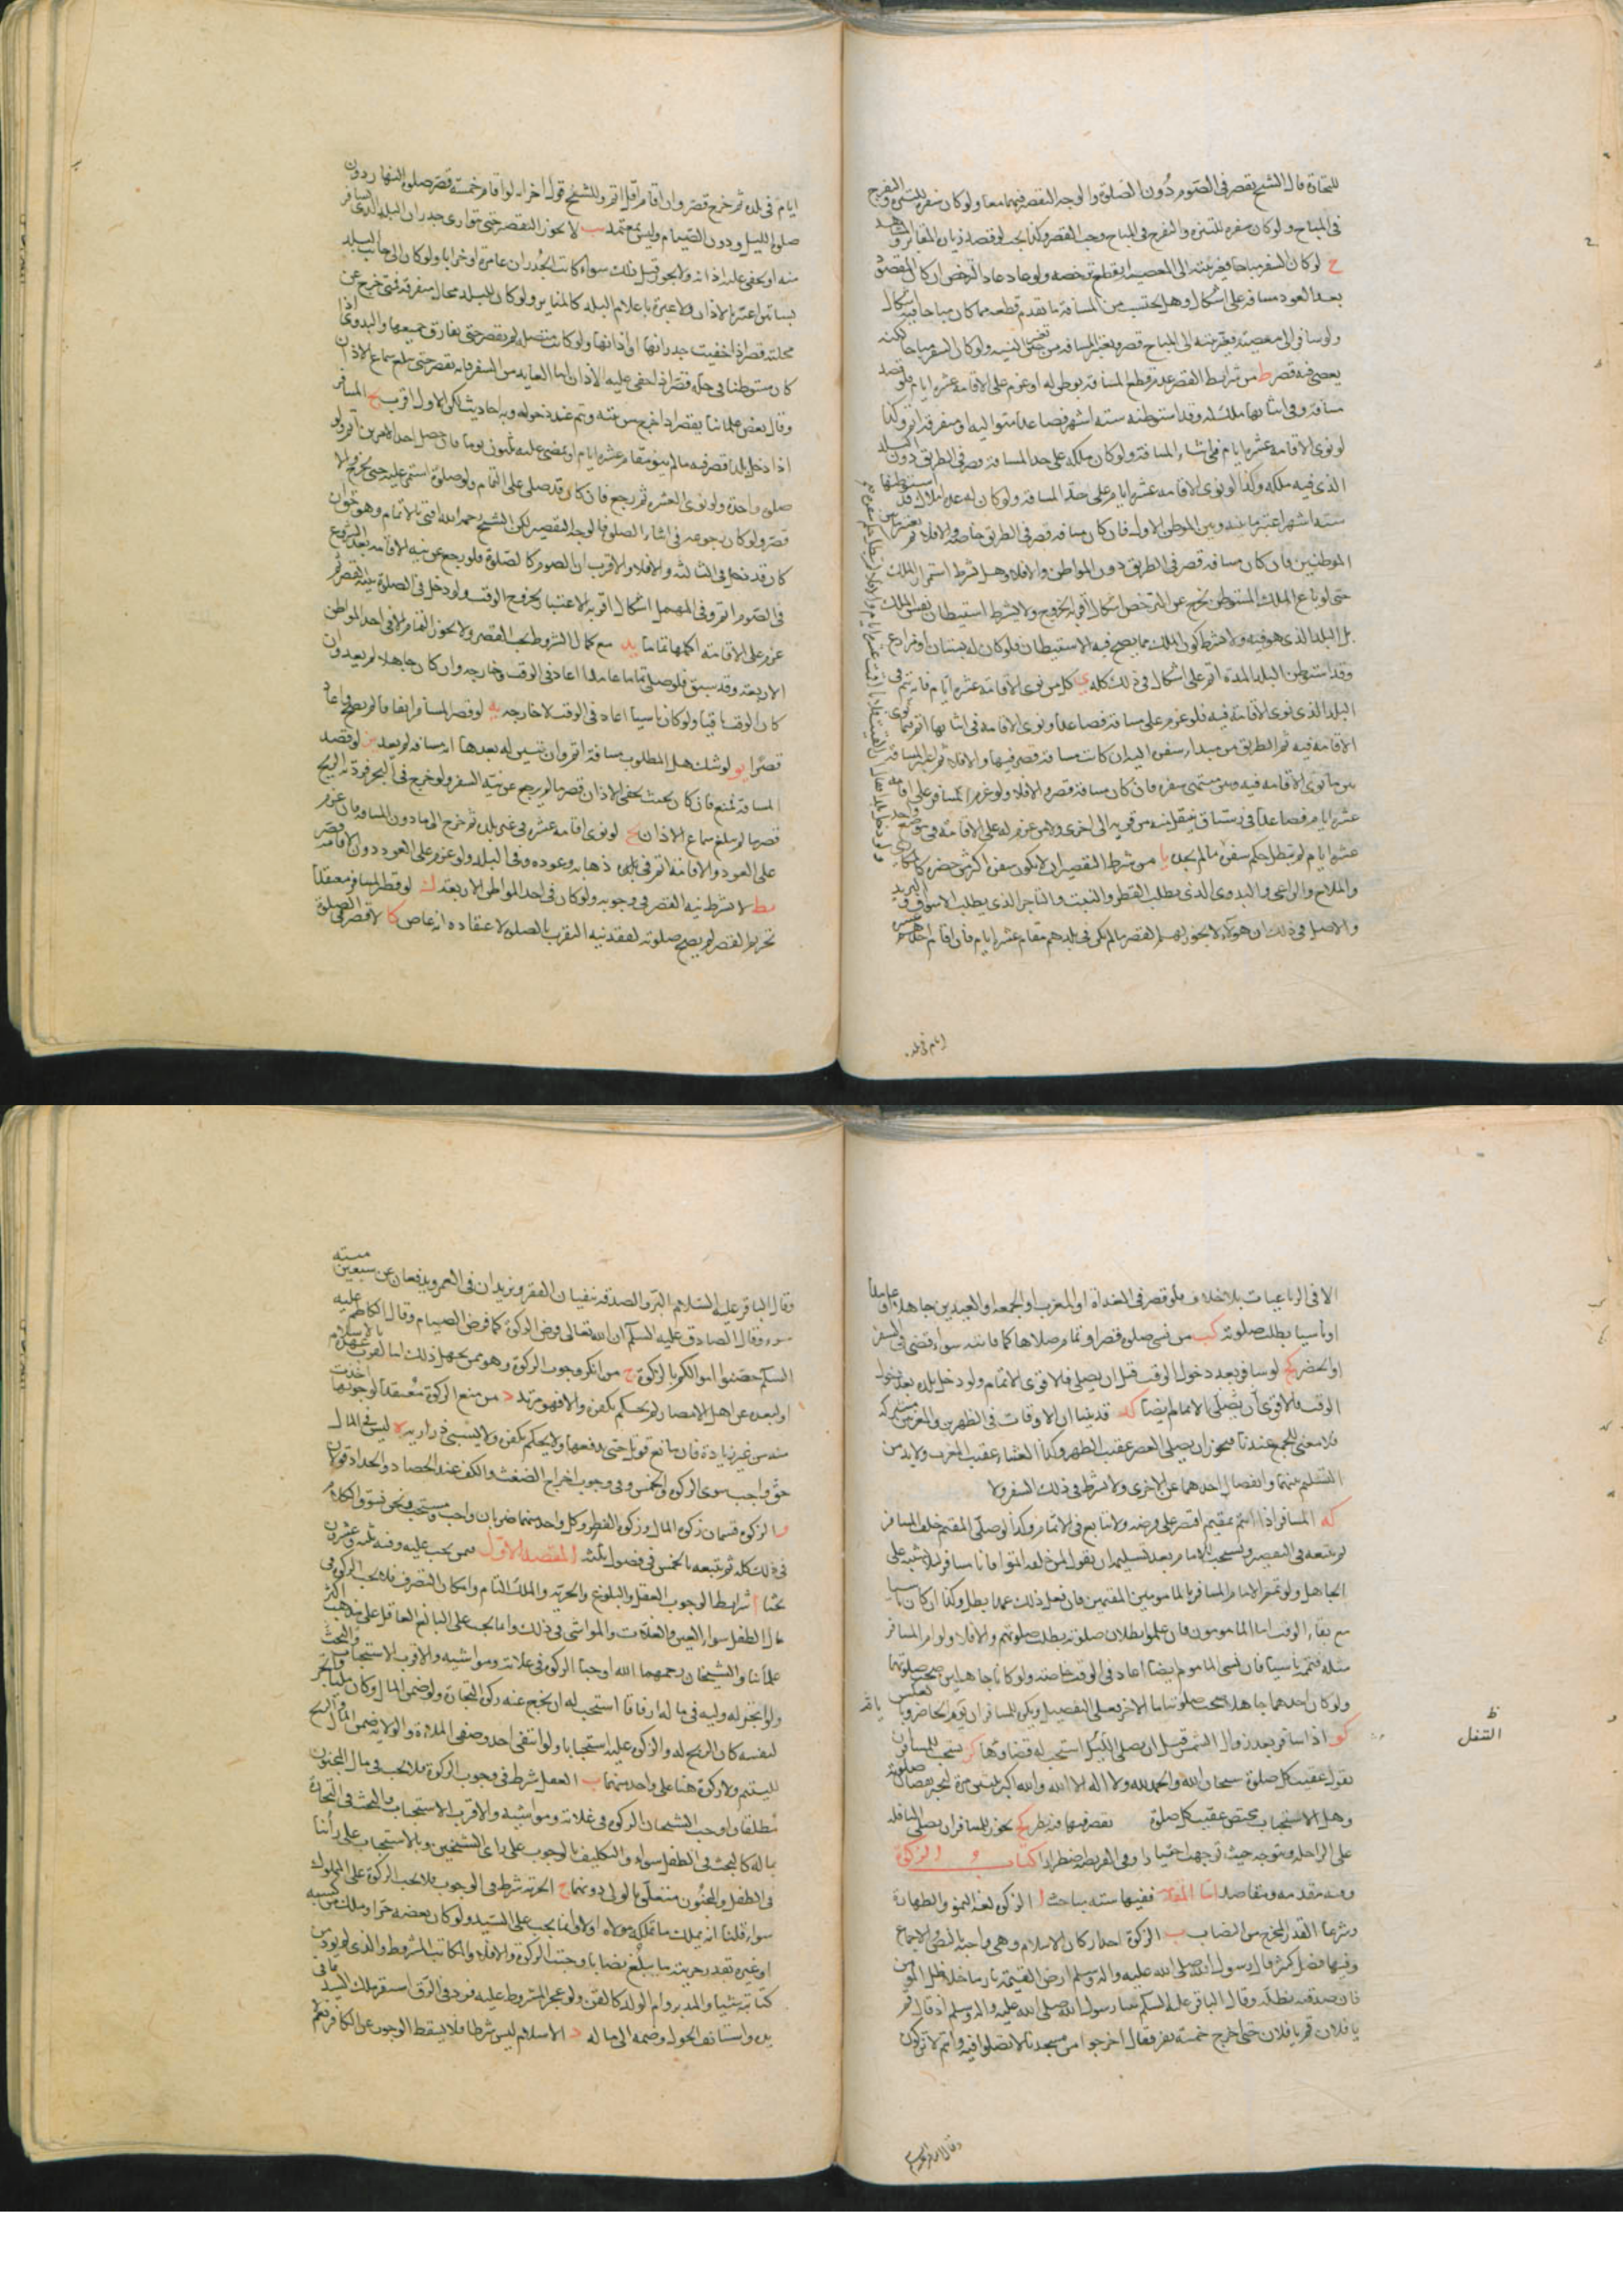 للتجارة قال الشيخ يقصر في الصوم دون الصلوة والوجه القصر فيهما معا ولو كان سفره للتنزه والتفرج
في المباح ولو كان سفره للتنزه والتفرج في المباح وجب القصر وكذا يجب لو قصد زيارة المقابر والمشاهد
ح لو كان السفر مباحا فغير نيته الى المعصية انقطع ترخصه ولو عاد عاد الترخص ان كان المقصد
بعد العود مسافة على اشكال وهل يحتسب من المسافة ما تقدم قطعه مما كان مباحا فيه اشكال
ولو سافر الى معصية فغير نيته الى المباح قصر ويعتبر المسافة من حين تغير النية ولو كان السفر مباحا لكنه
يعصي فيه قصر ط من شرايط القصر عدم قطع المسافة بوطن له او عزم على الاقامة عشرة ايام فلو قصد
مسافة وفي اثنائها ملك له وقد استوطنه ستة اشهر فصاعدا متوالية او متفرقة اتم وكذا
لو نوى الاقامة عشرة ايام في اثناء المسافة ولو كان ملكه على حد المسافة قصر في الطريق دون البلد
الذي فيه ملكه وكذا لو نوى الاقامة عشرة ايام على حد المسافة ولو كان له عدة املاك قد استوطنها
ستة اشهر اعتبر ما بينه وبين الموطن الاول فان كان مسافة قصر في الطريق خاصة والا فلا ثم يعتبر ما بين
الموطنين فان كان مسافة قصر في الطريق دون المواطن والا فلا وهل يشترط استمرار الملك
حتى لو باع الملك المستوطن يخرج عن الترخص اشكال اقربه الخروج ولا يشترط استيطان نفس الملك
بل البلد الذي هو فيه ولا يشترط كون الملك مما يصح فيه الاستيطان فلو كان له بستان او مزارع
وقد استوطن البلد المدة اتم على اشكال في ذلك كله ي كل من نوى الاقامة عشرة ايام فانه يتم في
البلد الذي نوى الاقامة فيه فلو عزم على مسافة فصاعدا ونوى الاقامة في اثنائها اتم فيما نوى
الاقامة فيه ثم الطريق من مبداء سفره اليه ان كانت مسافة قصر فيها والا فلا ثم يعتبر المسافة
بين ما نوى الاقامة فيه وبين منتهى سفره فان كان مسافة قصر والا فلا ولو عزم المسافر على اقامة
عشرة ايام فصاعدا في رستاق ينتقل فيه من قرية الى اخرى ولا من عزم له على الاقامة في موضع واحد
عشرة ايام لم يبطل حكم سفره ما لم يجد يا من شرط التقصير ان لا يكون سفره اكثر من حضره كالمكاري
والملاح والراعي والبدوي الذي يطلب القطر والنبت والتاجر الذي يطلب الاسواق والبريد
والاصل في ذلك ان هؤلاء لا يجوز لهم القصر ما لم يكن في بلدهم مقام عشرة ايام فان اقام احدهم عشرة
ايام في بلده
ايام في بلده ثم خرج قصر وان اقام اقل اتم وللشيخ قول اخر انه لو اقام خمسة قصر صلوة النهار دون
صلوة الليل ودون الصيام وليس بمعتمد يب لا يجوز التقصير حتى يتوارى جدران البلد الذي سافر
منه او يخفى عليه اذانه ولا يجوز قبل ذلك سواء كانت الجدران عامرة او خرابا ولو كان الى جانب البلد
بساتين اعتبر بالاذان ولا عبرة باعلام البلد كالمناير ولو كان للبلد محال متفرقة فمتى خرج عن
محلته قصر اذا خفيت جدرانها او اذانها ولو كانت متصلة لم يقصر حتى يفارق جميعها والبدوي اذا
كان مستوطنا في حلة قصر اذا خفى عليه الاذان اما العايد من السفر فانه يقصر حتى يبلغ سماع الاذان
وقال بعض علمائنا يقصر اذا خرج من بيته ويتم عند دخوله وبه احاديث لكن الاول اقرب يج المسافر
اذا دخل بلدا قصر فيه ما لم ينو مقام عشرة ايام او يمضي عليه ثلثون يوما فان حصل احد الامرين اتم ولو
صلوة واحدة ولو نوى العشرة ثم رجع فان كان قد صلى على التمام ولو صلوة استمر عليه حتى يخرج والا
قصر ولو كان رجوعه في اثناء الصلوة فالوجه التقصير لكن الشيخ رحمه الله افتى بالاتمام وهو قوي ان
كان قد دخل في الثالثة والا فلا والاقرب ان الصوم كالصلوة فلو رجع عن نية الاقامة بعد الشروع
في الصوم اتم وفي المهمل اشكال اقربه الاعتبار بخروج الوقت ولو دخل في الصلوة بنية القصر ثم
عزم على الاقامة اكملها تماما يد مع كمال الشروط يجب القصر ولا يجوز التمام الا في احد المواطن
الاربعة وقد سبق فلو صلى تماما عامدا اعاد في الوقت وخارجه وان كان جاهلا لم يعد وان
كان الوقت باقيا ولو كان ناسيا اعاد في الوقت لا خارجه يه لو قصر المسافر اتفاقا لم يصح واعاد
قصرا يو لو شك هل المطلوب مسافة اتم وان تبين له بعدها انه مسافة لم يعد يز لو قصد
المسافة فمنع فان كان بحيث يخفى الاذان قصر ما لم يرجع عن نية السفر ولو خرج في البحر فردته الريح
قصر ما لم يبلغ سماع الاذان يح لو نوى اقامة عشرة في غير بلده ثم خرج الى ما دون المسافة فان عزم
على العود والاقامة اتم في ذهابه وعوده وفي البلد ولو عزم على العود دون الاقامة قصر
يط لا يشترط نية القصر في وجوبه ولو كان في احد المواطن الاربعة ك لو قصر المسافر معتقدا
تحريم القصر لم يصح صلوته لفقد نية التقرب بالصلوة لاعتقاده انه عاص كا لا قصر في الصلوة
الا في الرباعيات بلا خلاف فلو قصر في الغداة او المغرب او الجمعة او العيدين جاهلا او عامدا
او ناسيا بطلت صلوته كب من نسي صلوة قصر او تمام صلاها كما فاتته سواء قضى في السفر
او الحضر كج لو سافر بعد دخول الوقت قبل ان يصلي فالاقوى الاتمام ولو دخل بلده بعد دخول
الوقت فالاقوى ان يصلي الاتمام ايضا كد قد بينا ان الاوقات في الظهرين والمغربين مشتركة
فلا معنى للجمع عندنا فيجوز ان يصلي العصر عقيب الظهر وكذا العشاء عقيب المغرب ولا بد من
التقديم بينهما وانفصال احدهما عن الاخرى ولا يشترط في ذلك السفر ولا
كه المسافر اذا ائتم بمقيم اقتصر على فرضه ولا يتابع في الاتمام وكذا لو صلى المقيم خلف المسافر
لم يتبعه في التقصير ويستحب للامام بعد تسليمه ان يقول لمن خلفه اتموا فانا سافر لئلا يشتبه على
الجاهل ولو تمم الامام المسافر بالمامومين المقيمين فان فعل ذلك عمدا بطل وكذا ان كان ناسيا
مع بقاء الوقت اما المامومون فان علموا بطلان صلوته بطلت صلوتهم والا فلا ولو ام المسافر
مثله فتمم ناسيا فان نسي الماموم ايضا اعاد في الوقت خاصة ولو كانا جاهلين صحت صلوتهما
ولو كان احدهما جاهلا صحت صلوته اما الاخر فعلى التفصيل ويكره للمسافر ان يؤم الحاضر وبالعكس
ظ
التنفل
كو اذا سافر بعد زوال الشمس قبل ان يصلي استحب له قضاؤها كز يستحب للمسافر ان
يقول عقيب كل صلوة سبحان الله والحمد لله ولا اله الا الله والله اكبر ثلثين مرة لتجبر نقصان صلوته
وهل الاستحباب مختص عقيب كل صلوة يقصر فيها فيه نظر كح يجوز للمسافر ان يصلي النافلة
على الراحلة ويتوجه حيث توجهت اختيارا وفي الفريضة اضطرارا كتاب الزكوة
وفيه مقدمة ومقاصد اما المقدمة ففيها ستة مباحث ا الزكوة لغة النمو والطهارة
وشرعا القدر المخرج من النصاب ب الزكوة احد اركان الاسلام وهي واجبة بالنص والاجماع
وفيها فضل كثير قال رسول الله صلى الله عليه واله وسلم ارض القيمة نار ما خلا ظل المؤمن
فان صدقته تظله وقال الباقر عليه السلام بينا رسول الله صلى الله عليه واله وسلم اذ قال قم
يا فلان قم يا فلان حتى اخرج خمسة نفر فقال اخرجوا من مسجدنا لا تصلوا فيه وانتم لا تزكون
وقال الباقر عليه السلم
وقال الباقر عليه السلام البر والصدقة ينفيان الفقر ويزيدان في العمر ويدفعان عن سبعين ميتة
سوء وقال الصادق عليه السلم ان الله تعالى فرض الزكوة كما فرض الصيام وقال الكاظم عليه
السلم حصنوا اموالكم بالزكوة ج من انكر وجوب الزكوة وهو ممن يجهل ذلك اما لقرب عهده بالاسلام
او لبعده عن اهل الامصار لم يحكم بكفره والا فهو مرتد د من منع الزكوة معتقدا لوجوبها اخذت
منه من غير زيادة فان مانع قوتل حتى يدفعها ولا يحكم بكفره ولا يسبى ذراريه ه ليس في المال
حق واجب سوى الزكوة والخمس وفي وجوب اخراج الضغث والكف عند الحصاد والجداد قولان
و الزكوة قسمان زكوة المال وزكوة الفطر وكل واحد منهما ضربان واجب ومستحب ونحن نسوق الكلام
في ذلك كله ثم يتبعه بالخمس في فصول ثلث المقصد الاول فيمن يجب عليه وفيه ثلثة وعشرون
بحثا ا شرايط الوجوب العقل والبلوغ والحرية والملك التام وامكان التصرف فلا تجب الزكوة في
مال الطفل سواء العين والغلات والمواشي في ذلك وانما يجب على البالغ العاقل على مذهب اكثر
علمائنا والشيخان رحمهما الله اوجبا الزكوة في غلاته ومواشيه والاقرب الاستحباب والبحث
ولو اتجر له وليه في ماله ارفاقا استحب له ان يخرج عنه زكوة التجارة ولو ضمن المال وكان مليا واتجر
لنفسه كان الربح له والزكوة عليه استحبابا ولو انتفى احد وصفي الملاءة والولاية ضمن المال والربح
لليتيم ولا زكوة هنا على واحد منهما ب العقل شرط في وجوب الزكوة فلا يجب في مال المجنون
مطلقا واوجب الشيخان الزكوة في غلاته ومواشيه والاقرب الاستحباب والبحث في التجارة
بماله كالبحث في الطفل سواء والتكليف بالوجوب على راي الشيخين وبالاستحباب على رأينا
في الطفل والمجنون متعلق بالولي دونهما ج الحرية شرط في الوجوب فلا يجب الزكوة على المملوك
سواء قلنا انه يملك ما ملكه مولاه او لا وانما يجب على السيد ولو كان بعضه حرا وملك من كسبه
او غيره بقدر حريته ما يبلغ نصابا وجبت الزكوة والا فلا والمكاتب المشروط والذي لم يؤد من
كتابته شيئا والمدبر وام الولد كالقن ولو عجز المشروط عليه فرد في الرق استقر ملك السيد على ما في
يده واستانف الحول وضمه الى ماله د الاسلام ليس شرطا فلا يسقط الوجوب عن الكافر نعم